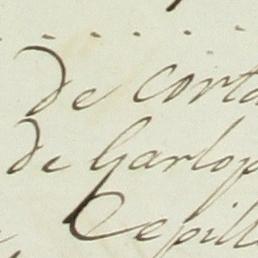 De corta
de Garlop
Cepill